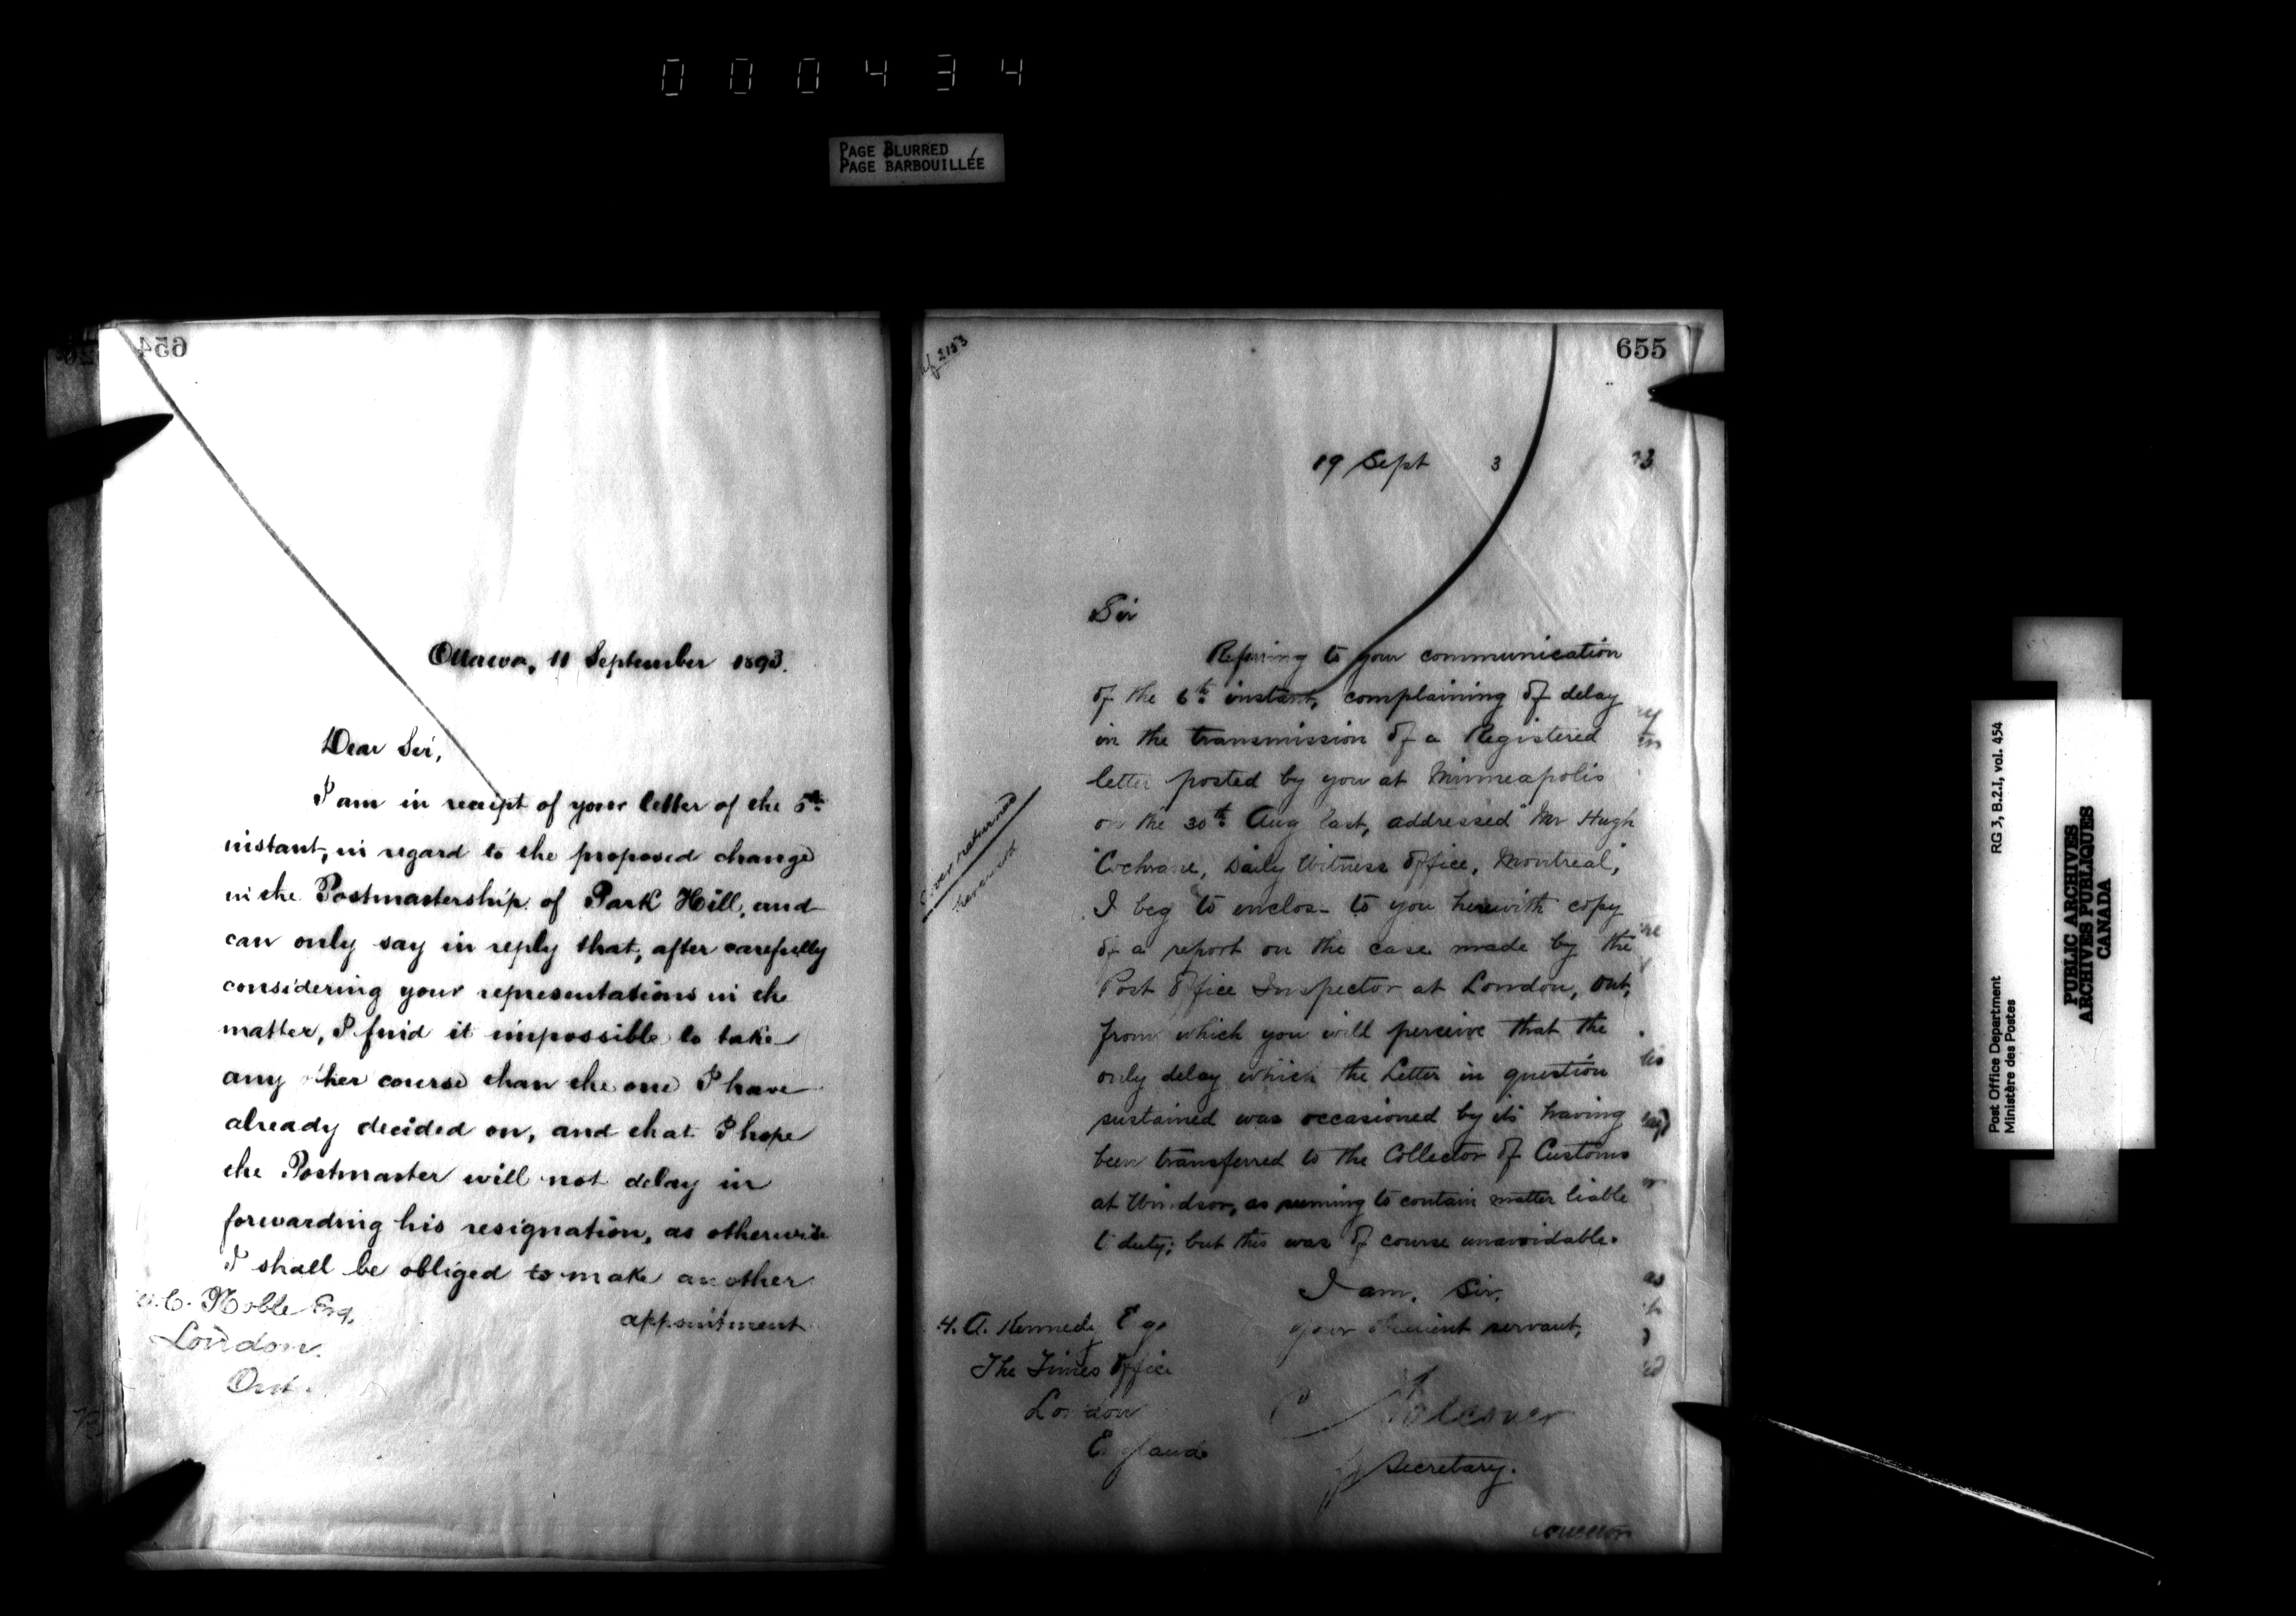 000434
PAGE BLURRED
PAGE BARBOUILLÉE
654
Ottawa, 11 September 1893.
Dear Sir,
I am in receipt of your letter of the 5th
instant, in regard to the proposed change
in the Postmastership of Park Hill, and
can only say in reply that, after carefully
considering your representations in the
matter, I find it impossible to take
any other course than the one I have
already decided on, and that I hope
the Postmaster will not delay in
forwarding his resignation, as otherwise
I shall be obliged to make another
appointment
C. Noble Esq.
London.
Ont.
655
19 Sept 3
Sir
Referring to your communication
of the 6th instant, complaining of delay
in the transmission of a Registered
letter posted by you at Minneapolis
on the 30th Aug last, addressed "Mr Hugh
"Cochrane, Daily Witness Office, Montreal,"
I beg to enclose to you herewith copy
of a report on the case made by the
Post Office Inspector at London, Ont,
from which you will perceive that the
only delay which the Letter in question
sustained was occasioned by its having
been transferred to the Collector of Customs
at Windsor, as seeming to contain matter liable
to duty; but this was of course unavoidable.
I am, Sir,
Your obedient servant,
Cover returned
herewith
H. A. Kennedy Esq
The Times Office
London
England
Secretary.
Post Office Department
Ministère des Postes
RG 3, B.2.I, vol. 454
PUBLIC ARCHIVES
ARCHIVES PUBLIQUES
CANADA